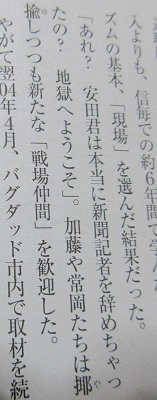 入よりも、信毎での約6年間で学ん
ズムの基本、「現場」を選んだ結果だった。
「あれ? 安田君は本当に新聞記者を辞めちゃっ
たの? 地獄へようこそ」。加藤や常岡たちは揶
揄しつつも新たな「戦場仲間」を歓迎した。
やがて翌04年4月、バグダッド市内で取材を続